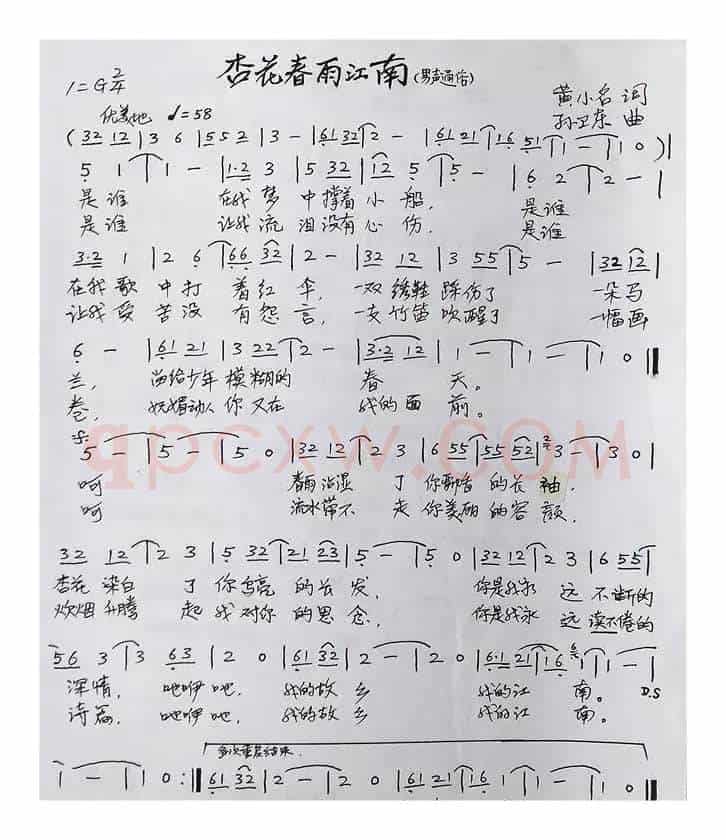 杏花春雨江南(男声通俗)
1=G 2/4
黄小名 词
优美地 ♩=58
孙卫东 曲
(32 12 | 3 6 | 552 | 3 - | 61 32 | 2 - | 61 21 | 16 51 | 1 - | 1 0 )|
5 1 | 1 - | 1·2 3 | 5 32 | 12 5 | 5 - | 6 2 | 2 - |
是谁 在我梦 中撑着小船, 是谁
是谁 让我流 泪没有心伤, 是谁
3·2 1 | 2 6 | 66 32 | 2 - | 32 12 | 3 55 | 5 - | 32 12 |
在我歌 中打 着红伞, 一双绣鞋 踩伤了 一朵马
让我受 苦没 有怨言, 一支竹笛 吹醒了 一幅画
6 - | 61 21 | 3 22 | 2 - | 3·2 12 | 1 - | 1 - | 1 0 ‖
兰, 留给少年 模糊的 春 天。
卷, 妩媚动人 你又在 我的面 前。
5 - | 5 - | 5 0 | 32 12 | 2 3 | 6 55 | 55 52 | 3 - | 3 0 |
呵 春雨沾湿 了 你飘香 的长 袖.
呵 流水带不 走 你美丽 的容 颜.
32 12 | 2 3 | 5 32 | 21 23 | 5 - | 5 0 | 32 12 | 2 3 | 6 55 |
杏花 染白 了 你乌亮 的长 发, 你是我永 远 不断的
炊烟 升腾 起 我对你 的思 念, 你是我永 远 读不倦的
56 3 | 3 63 | 2 0 | 61 32 | 2 - | 2 0 | 6·1 21 | 16 | 1 - |
深情, 吔咿吔, 我的故 乡 我的江 南。 D.S
诗篇, 吔咿吔, 我的故 乡 我的江 南。
多次重复结束.
1 - | 1 0 :‖ 61 32 | 2 - | 2 0 | 61 21 | 16 1 | 1 - | 1 0 ‖
qpcxw.COM